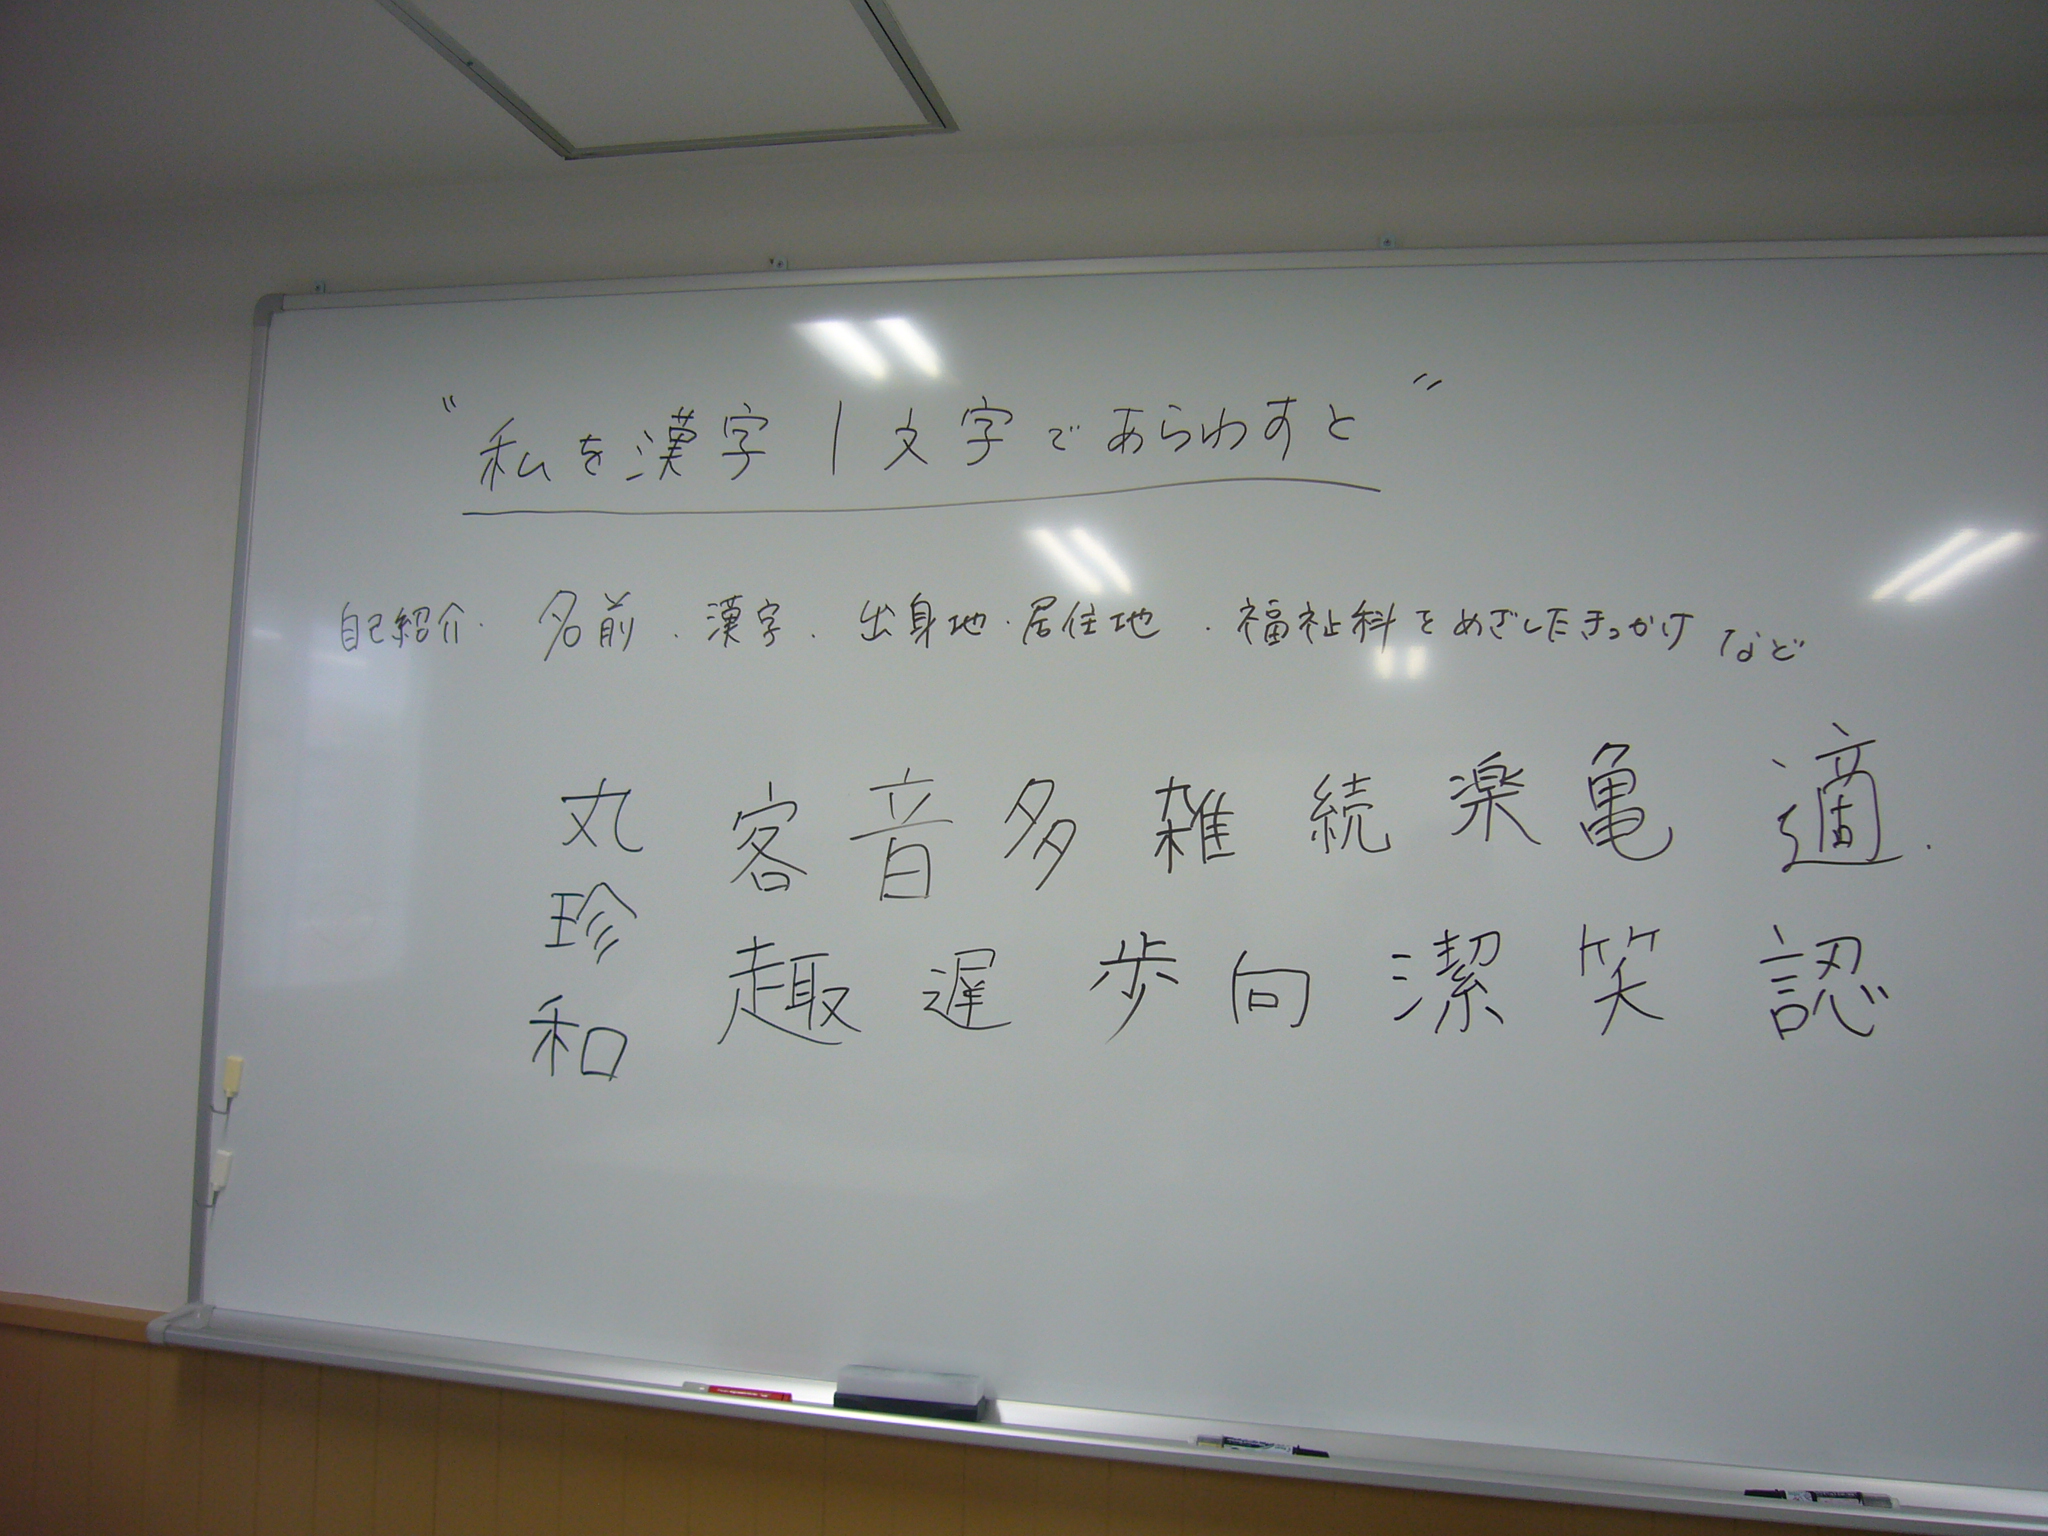 〝私を漢字1文字であらわすと〟
自己紹介・名前・漢字・出身地・居住地・福祉科をめざしたきっかけなど
丸 客 音 多 雑 続 楽 亀 適.
珍 趣 遅 歩 向 潔 笑 認
和